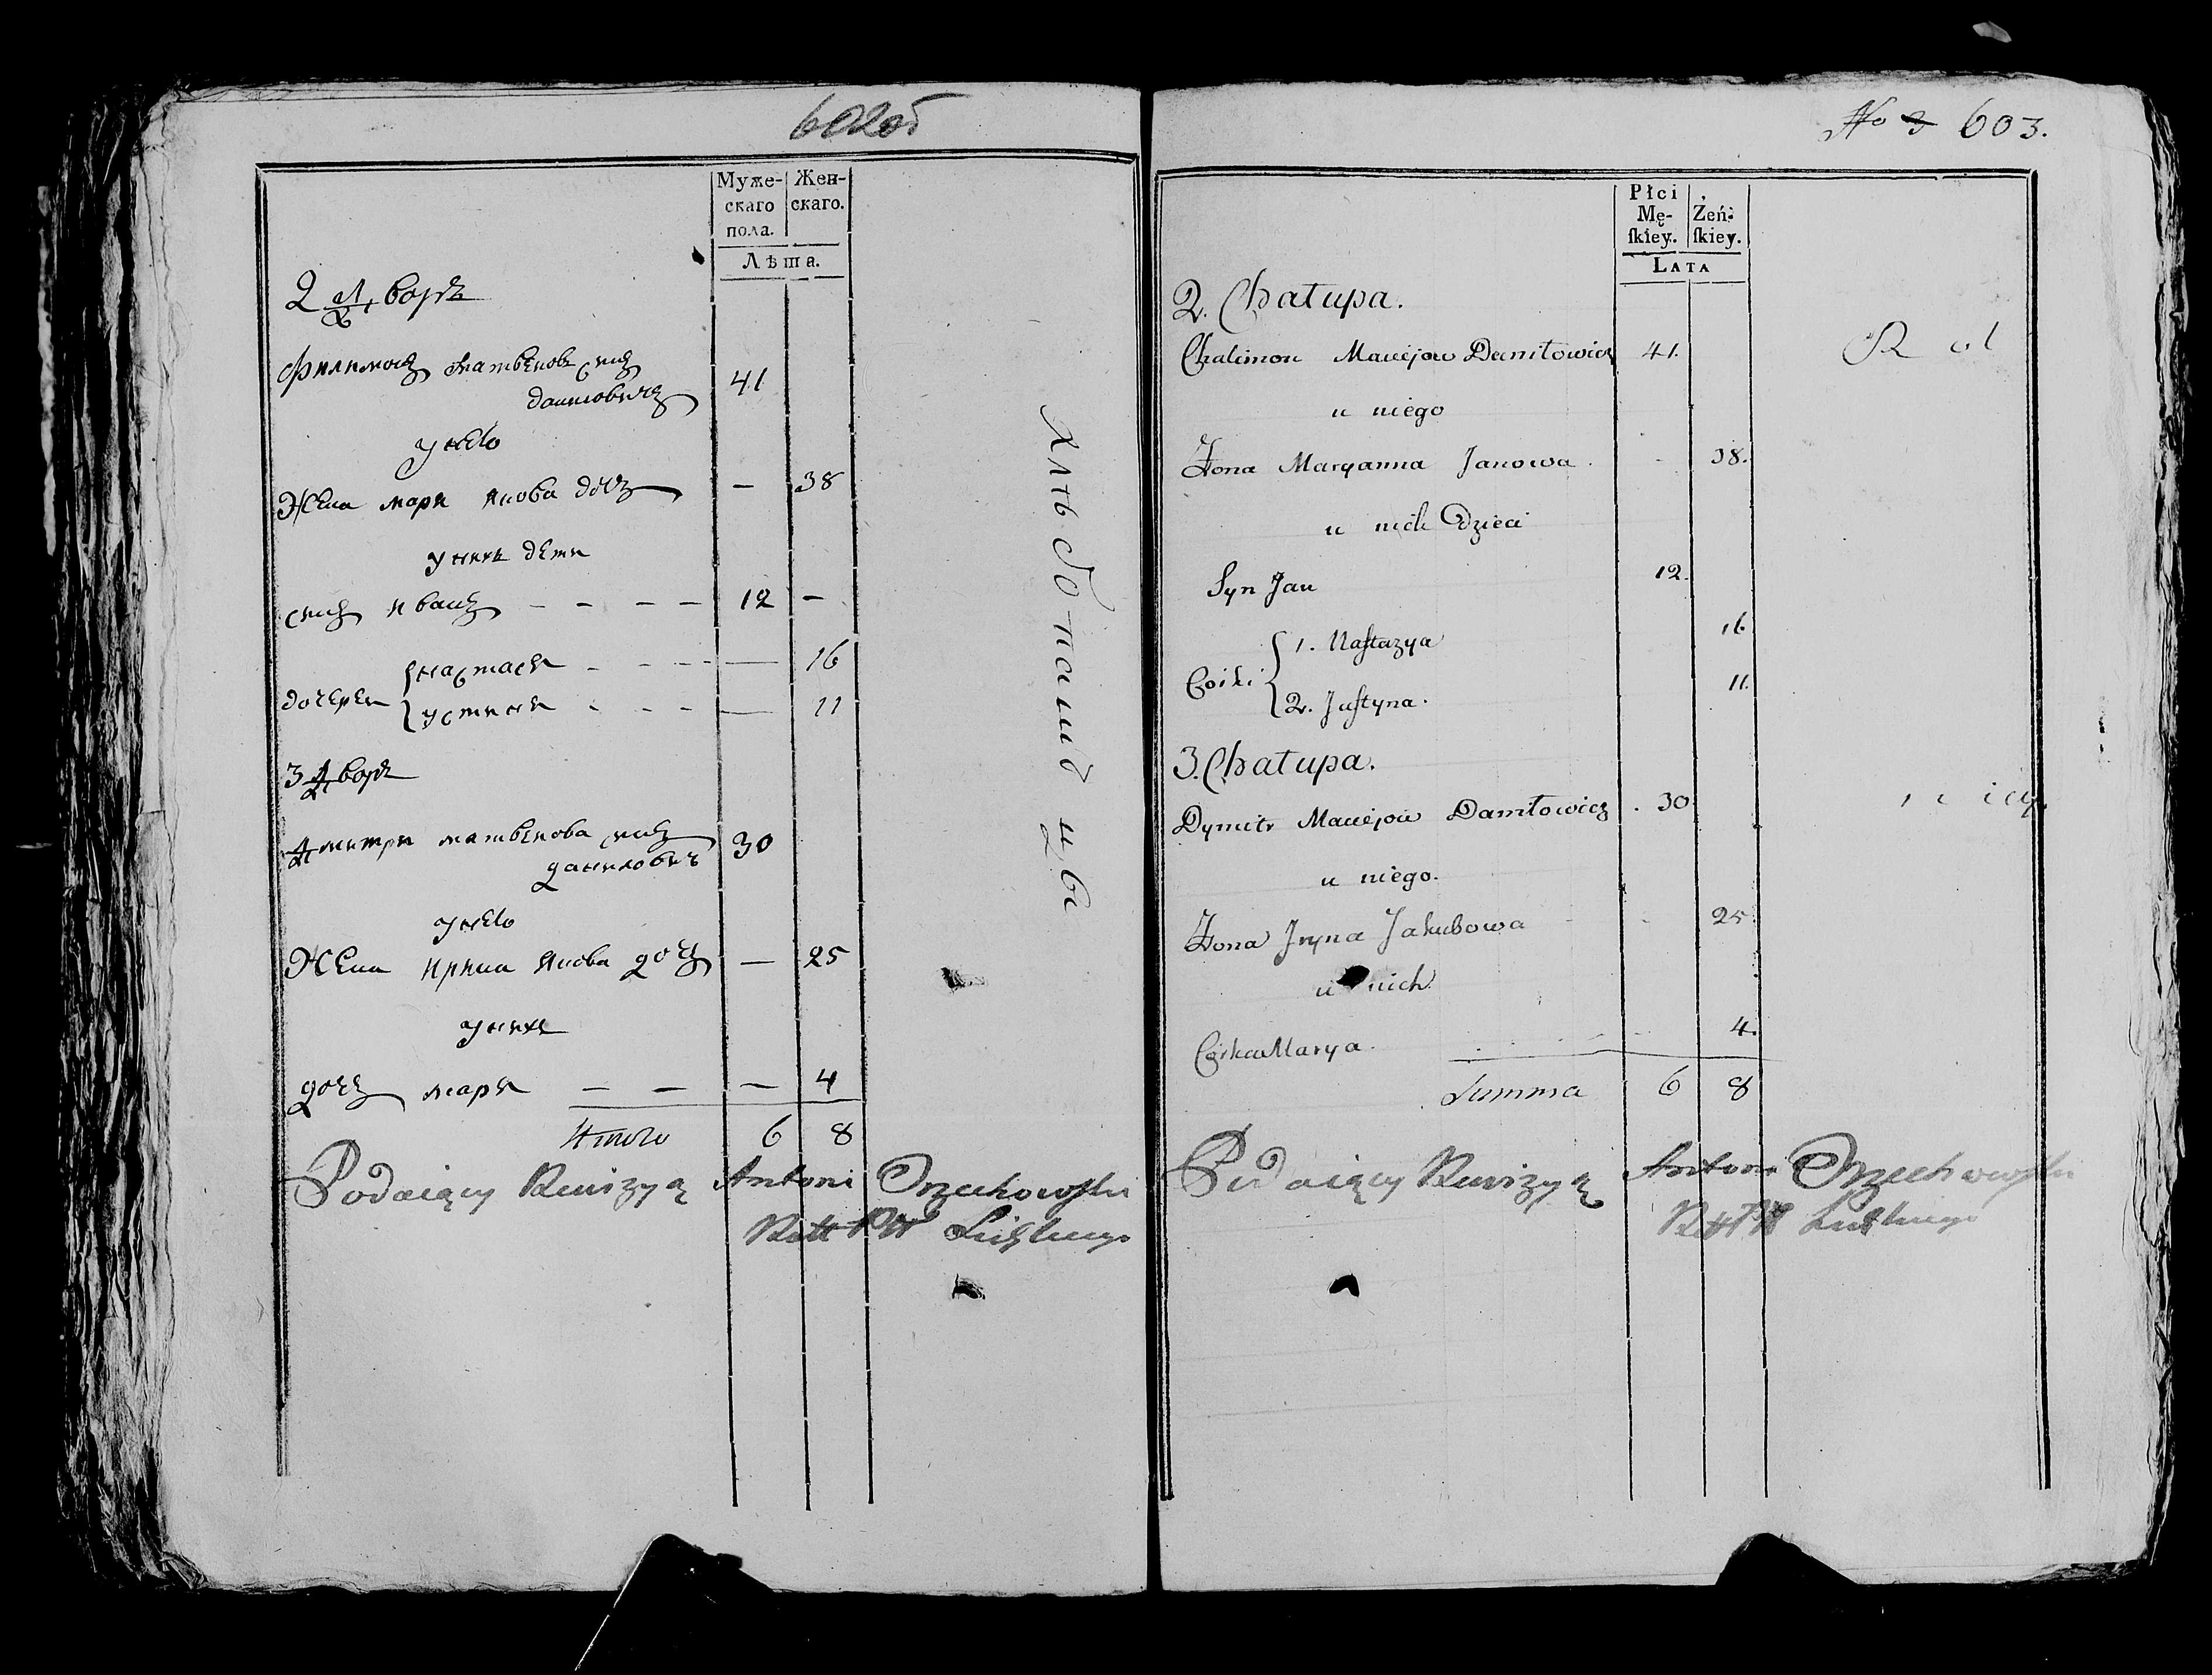 602об
Муже-
скаго
пола.
Жен-
скаго.
Лѣта.
2 Дворъ
Филимонъ Матвѣювъ сынъ
Даниловичъ 41
у него
Жена Маря Янова дочъ — 38
у нихъ дети
сынъ Иванъ - - - - 12 —
дочерей { Настасия - - - - — 16
Устиния - - - - — 11
3 Дворъ
Дмитрий Матвѣюва сынъ
Даниловичъ 30
у него
Жена Ирина Янова дочъ — 25
у нихъ
дочъ Маря — — — 4
Итого 6 8
Podaiący Rewizyą Antoni Orzechowski
Rott
хлѣбопашцы
No 3 603.
Płci
Mę-
ſkiey.
Żeń-
ſkiey.
LATA
2. Chałupa.
Chalimon Maciejow Daniłowicz 41.
u niego
Żona Maryanna Janowa. - 38.
u nich Dzieci
Syn Jan 12.
Corki { 1. Naſtazya 16.
2. Juſtyna. 11.
3. Chałupa.
Dymitr Maciejow Daniłowicz . 30
u niego.
Żona Jryna Jakubowa - 25.
u nich
Corka Marya. 4.
Summa 6 8
Podaiący Rewizyą Antoni Orzechowski